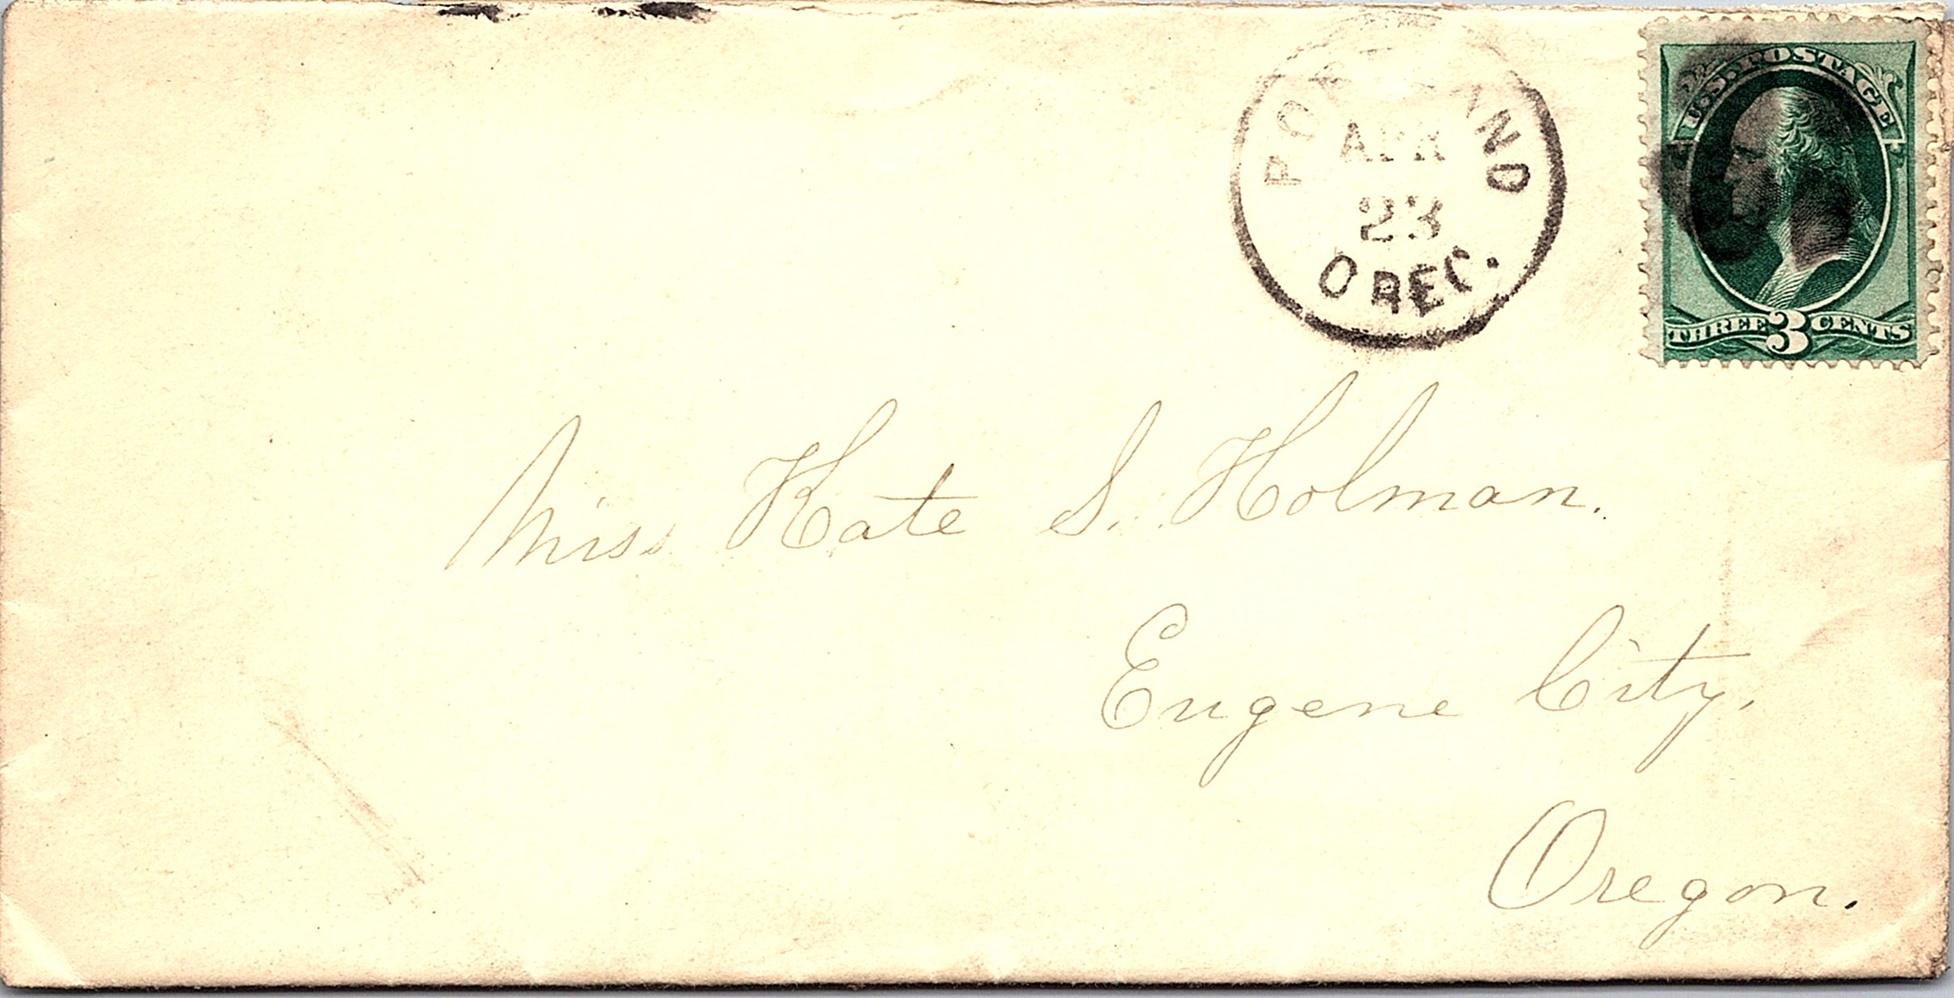 PORTLAND
APR
23
OREG.
U.S. POSTAGE
THREE 3 CENTS
Miss Kate S. Holman.
Eugene City,
Oregon.